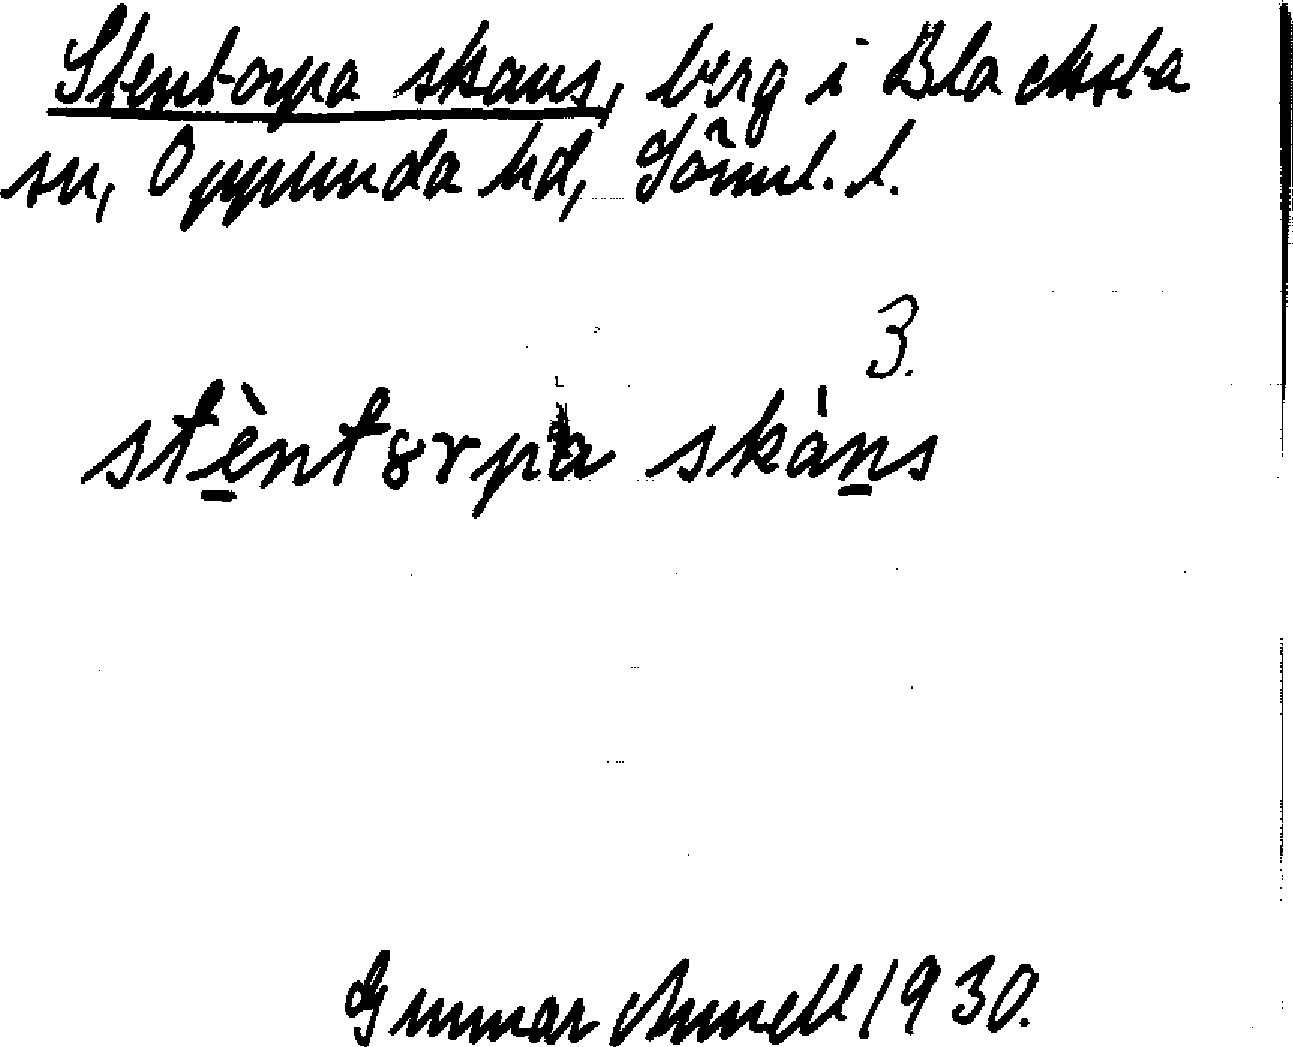 Stentorpa skans, berg i Blacksta
sn, Oppunda hd, Sörml. l.
3.
stèntȣrpa skáns
Gunnar Annell 1930.